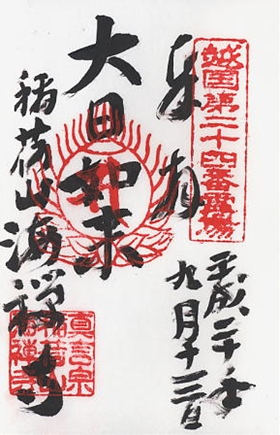 奉拝
第二十四番霊場
大日如来
稲荷山海禅寺
平成二十年
九月十三日
真言宗
稲荷山
海禅寺